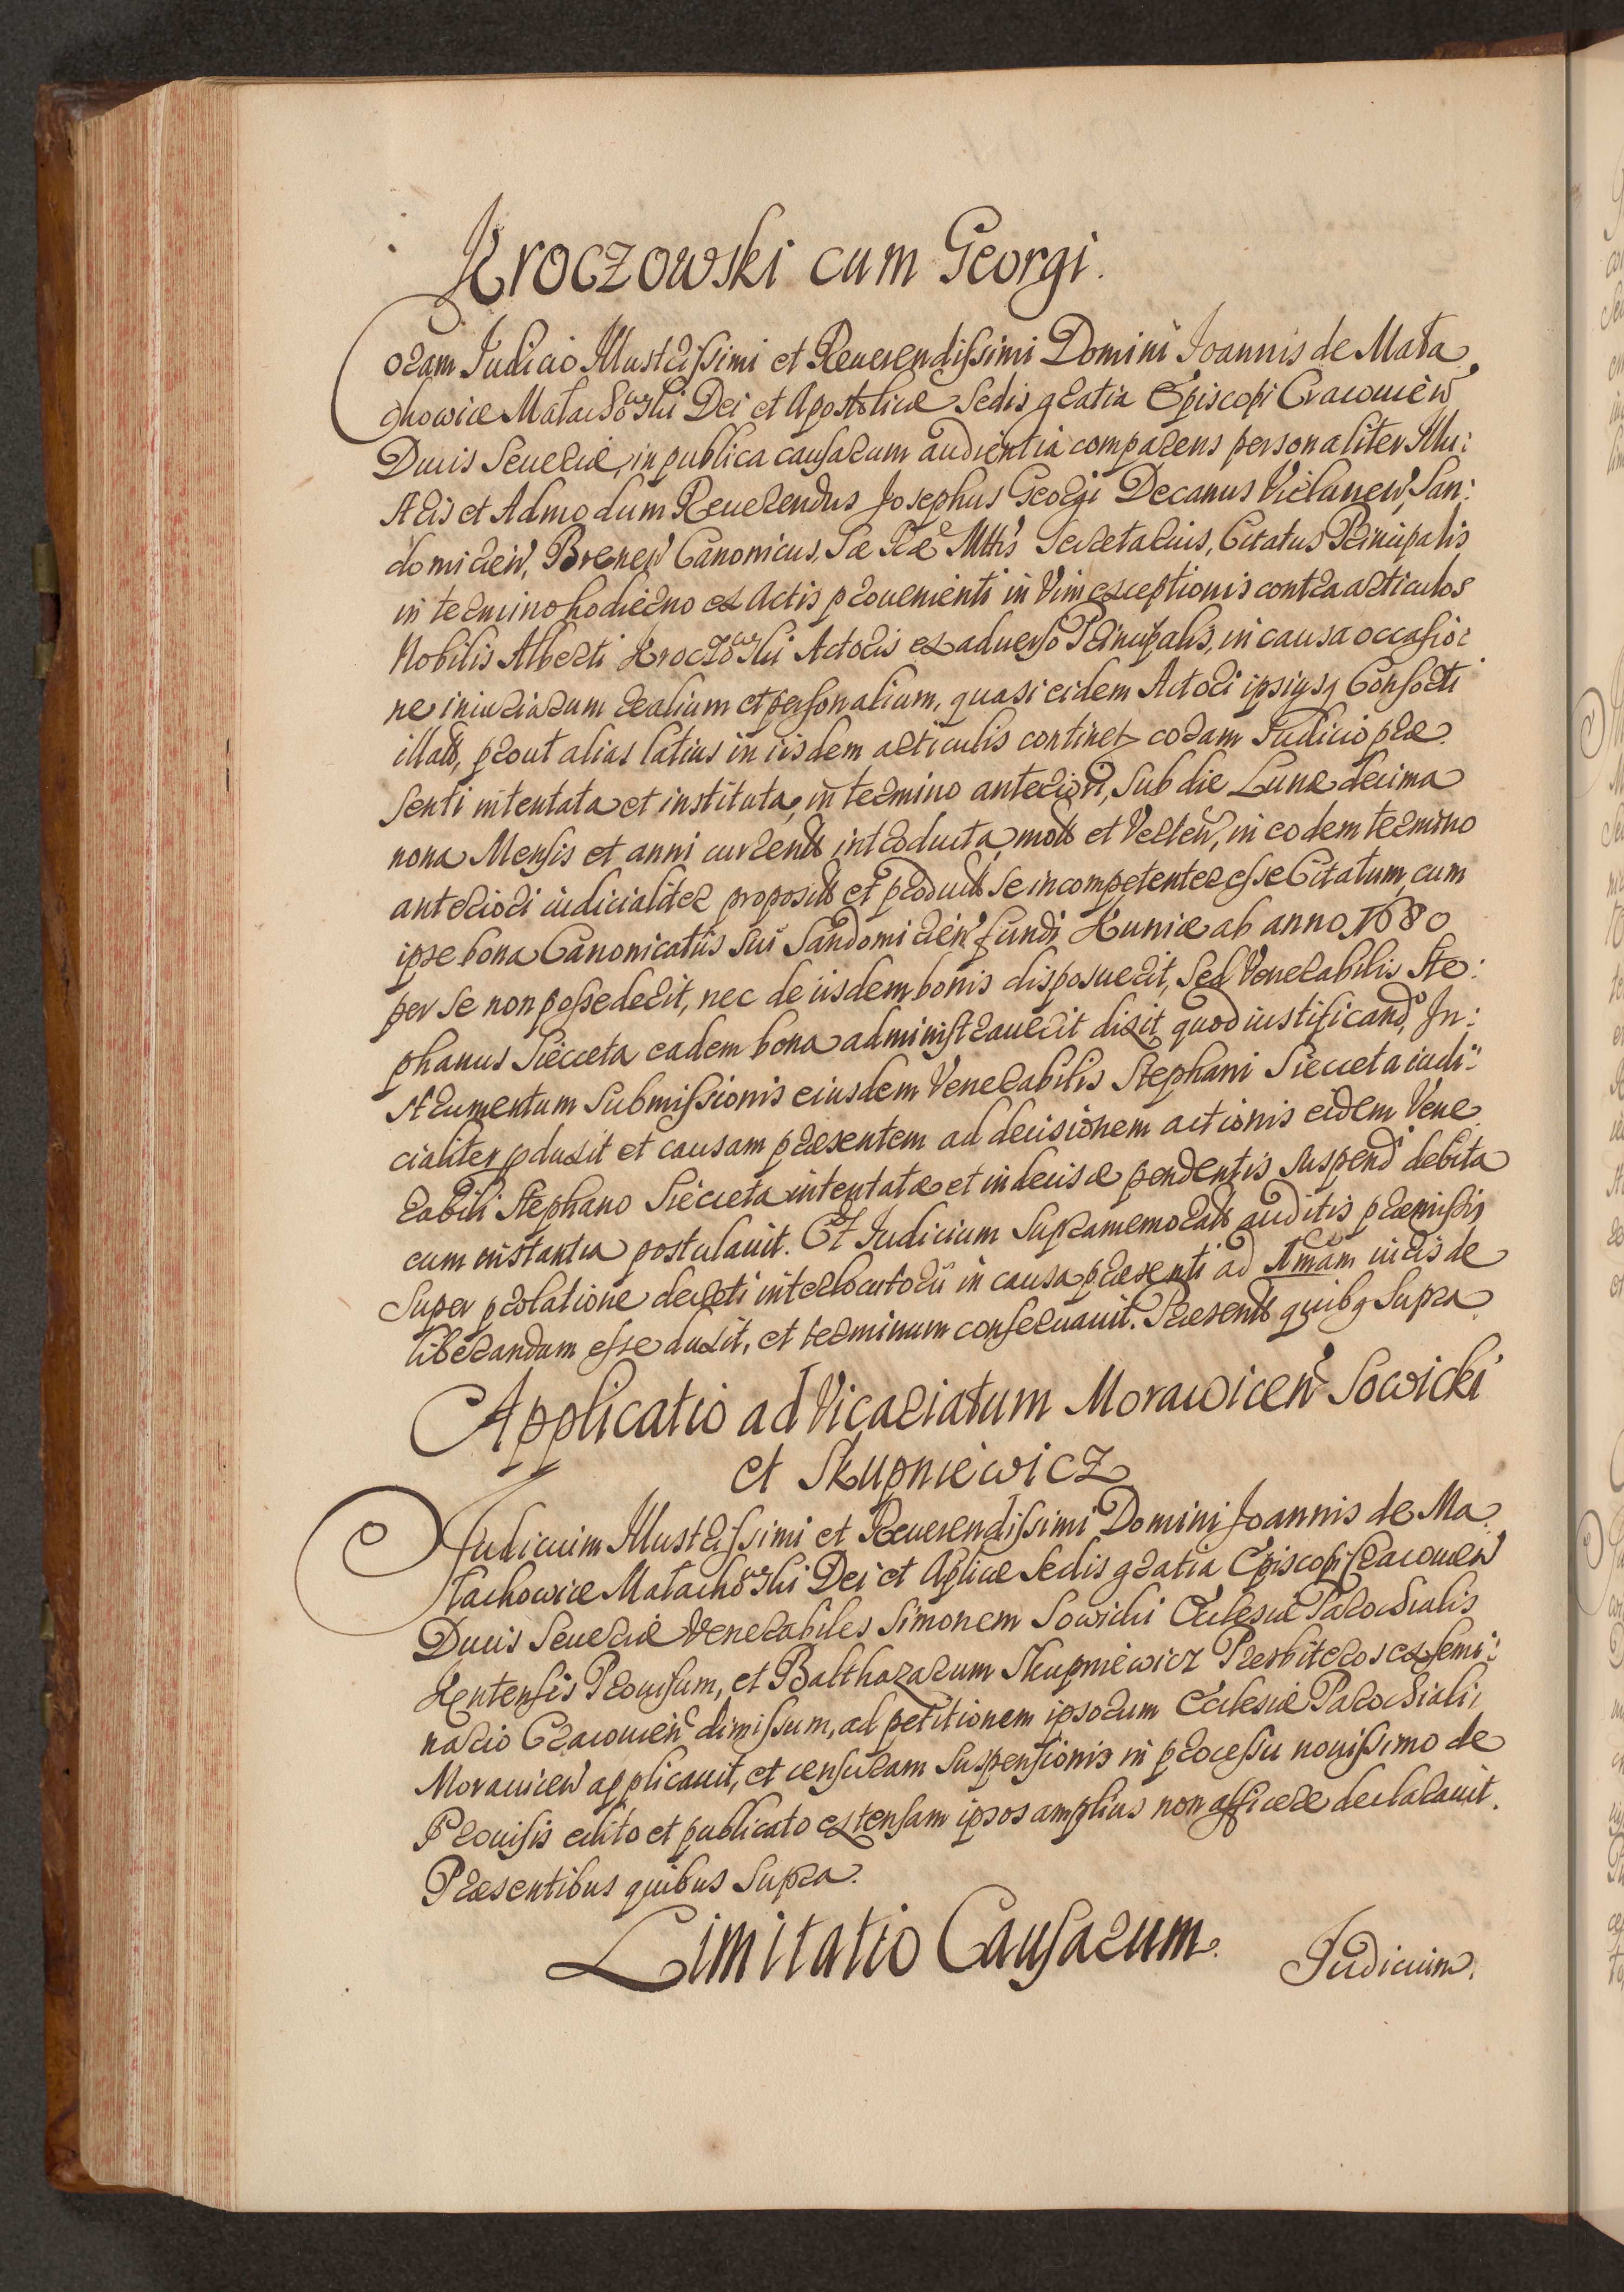 Kroczowski cum Georgi.
Coram Judicio Illustrissimi et Reuerendissimi Domini Joannis de Mała
chowice Małachowski Dei et Apostolicæ Sedis gratia Episcopi Cracouień
Ducis Seueriæ, in publica causarum audientia comparens personaliter Illu:
stris et Admodum Reuerendus Josephus Georgi Decanus Vieluneń, San:
domirień, Breneń Canonicus, Sæ Ræ Mttis Secretarius, Citatus Principalis
in termino hodierno ex Actis prouenienti in Vim exceptionis contra articulos
Nobilis Alberti Kroczowski Actoris ex aduerso Principalis, in causa occasio:
ne iniuriarum realium et personalium, quasi eidem Actori ipsiusq Consorti
illatt, prout alias latius in iisdem articulis continet coram Judicio præ
senti intentata et instituta, in termino anteriori, sub die Lunæ decima
nona Mensis et anni currentt introducta, mott et Verteń, in eodem termino
anteriori iudicialiter propositt et productt se incompetenter esse Citatum, cum
ipse bona Canonicatûs sui Sandomirień fundi Kuniæ ab anno 1680
per se non possederit, nec de iisdem bonis disposuerit, sed Venerabilis Ste:
phanus Siecieta eadem bona administrauerit dixit, quod iustificando, In:
strumentum Submissionis eiusdem Venerabilis Stephani Siecieta iudi:
cialiter pduxit et causam præsentem ad decisionem actionis eidem Vene
rabili Stephano Siecieta intentatæ et indecisæ pendentis suspendi debita
cum instantia postulauit. Et Judicium supramemoratt auditis præmissis
super prolatione decreti interlocutorii in causa præsenti ad Amam iuris de
liberandum esse duxit, et terminum conseruauit. Præsentt quibq supra.
Applicatio ad Vicariatum Morawiceń Sowicki
et Skupniewicz
Judicium Illustrissimi et Reuerendissimi Domini Joannis de Ma
łachowice Małachowski Dei et Aplicæ Sedis gratia Episcopi Cracouień
Ducis Seueriæ Venerabiles Simonem Sowicki Ecclesiæ Parochialis
Kentensis Prouisum, et Balthazarum Skupniewicz Presbiteros ex Semi:
nario Cracouień dimissum, ad petitionem ipsorum Ecclesiæ Parochiali
Morauiceń applicauit, et censuram suspensionis in processu nouissimo de
Prouisis edito et publicato extensam ipsos amplius non afficere declarauit.
Præsentibus quibus supra.
Limitatio Causarum.
Judicium.